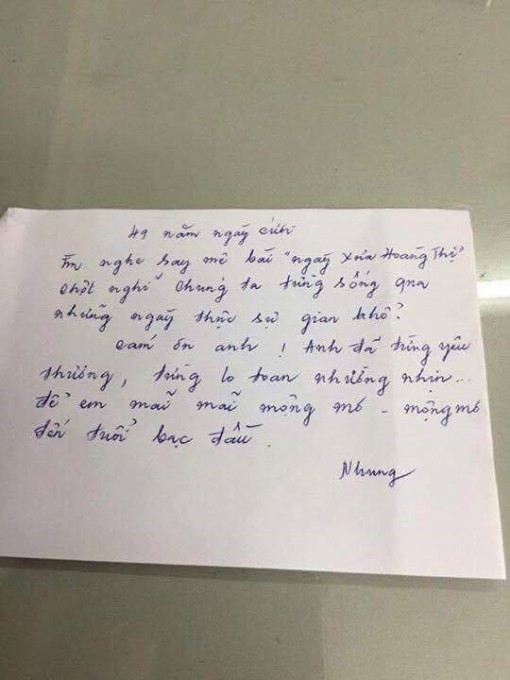 49 năm ngày cưới
Em nghe say mê bài "ngày xưa Hoàng Thị"
chợt nghĩ chúng ta từng sống qua
những ngày thực sự gian khổ?
cám ơn anh ! Anh đã từng yêu
thương, từng lo toan nhường nhịn...
để em mãi mãi mộng mơ - mộng mơ
đến tuổi bạc đầu.
Nhung